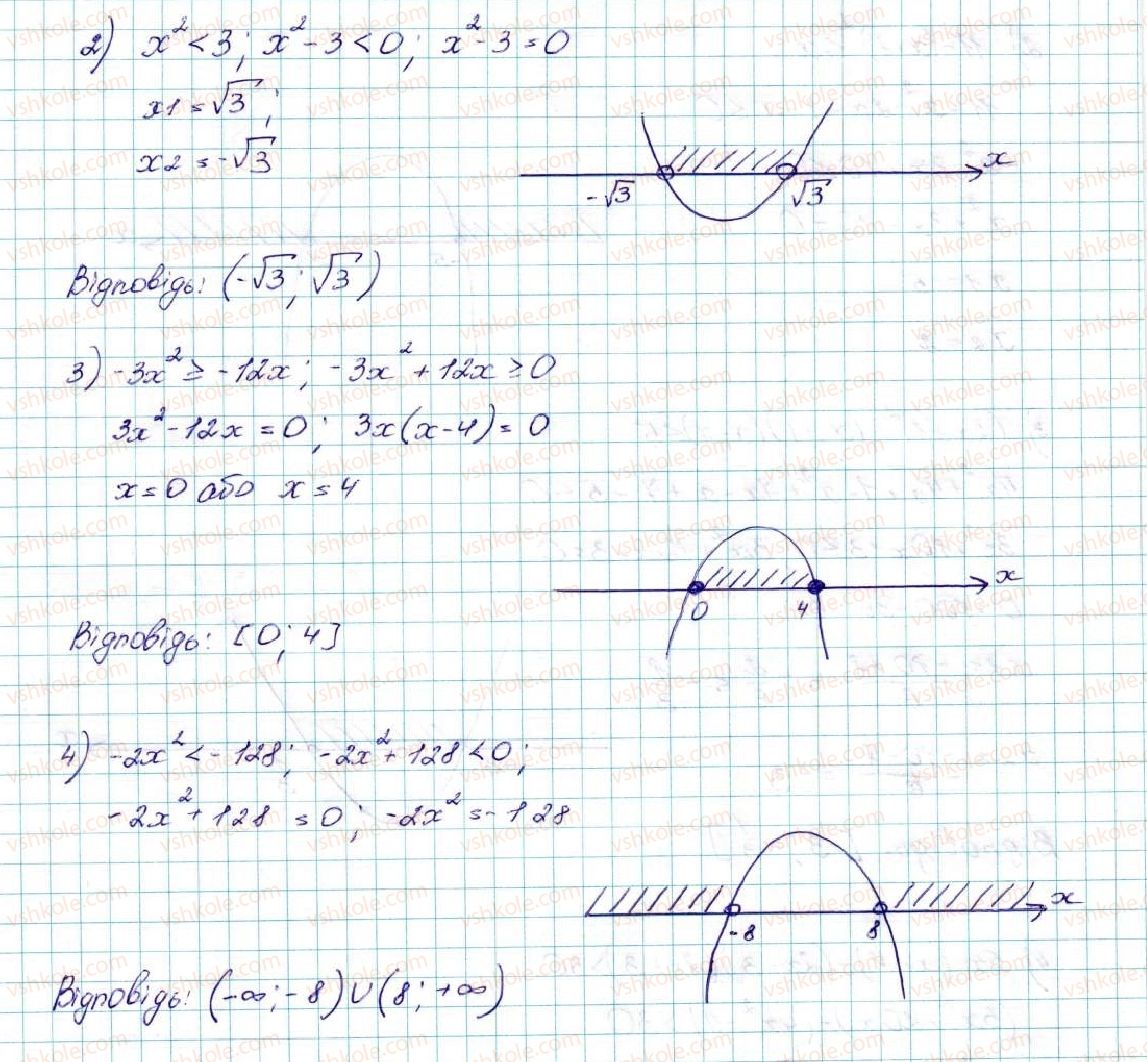 2) x² < 3; x² - 3 < 0; x² - 3 = 0
x1 = √3;
x2 = -√3
-√3 √3 x
Відповідь: (-√3; √3)
3) -3x² ≥ -12x; -3x² + 12x ≥ 0
3x² - 12x = 0; 3x(x - 4) = 0
x = 0 або x = 4
0 4 x
Відповідь: [0; 4]
4) -2x² < -128; -2x² + 128 < 0;
-2x² + 128 = 0; -2x² = -128
-8 8 x
Відповідь: (-∞; -8) ∪ (8; +∞)
vshkole.com